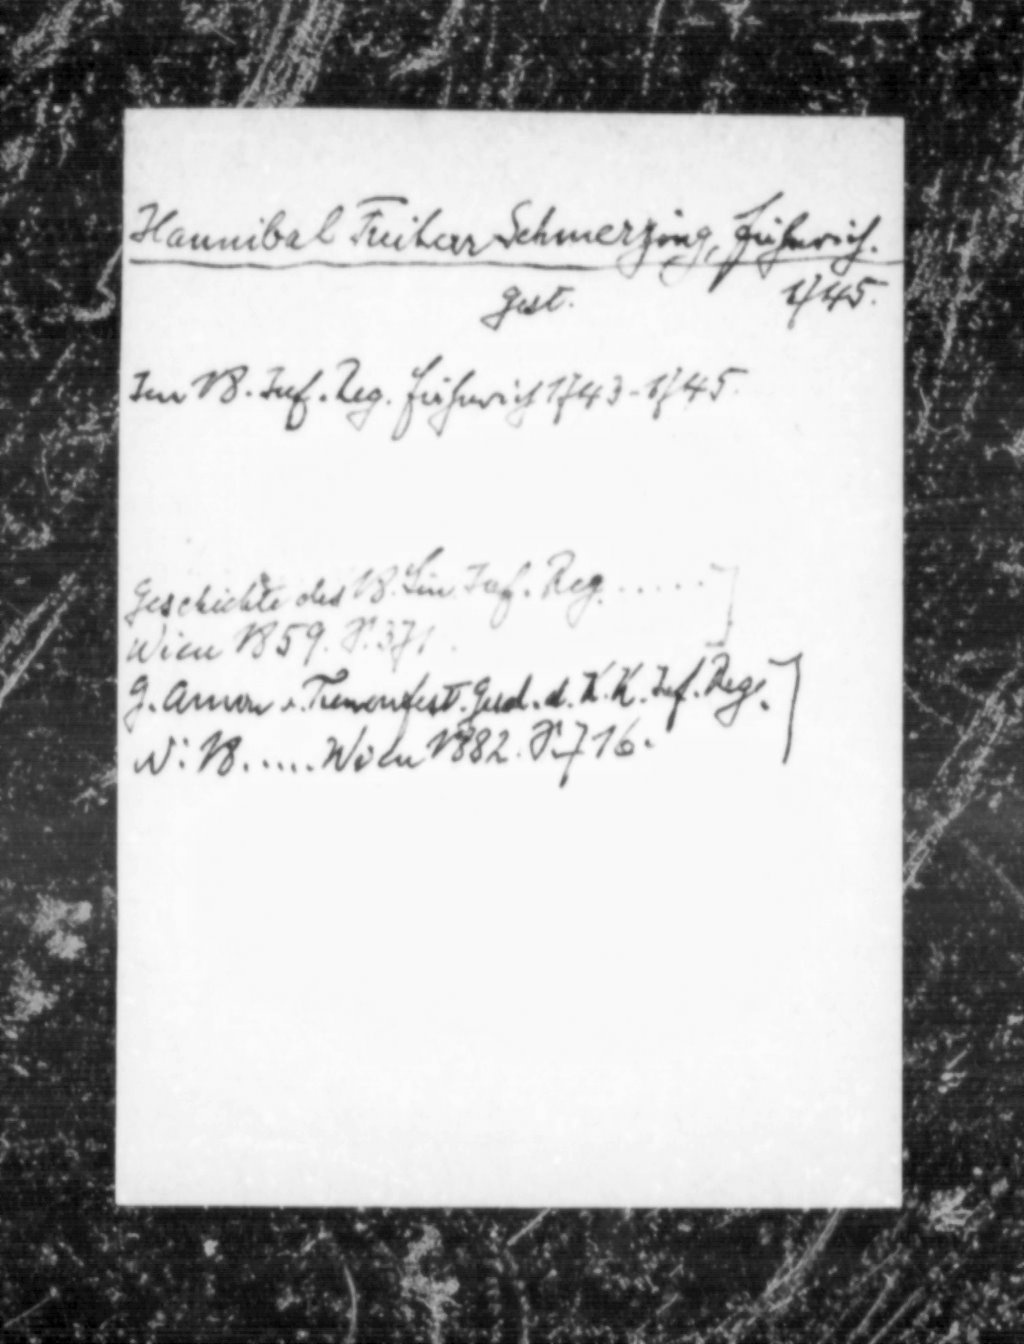 Hannibal Freiherr Schmerzing, Fähnrich.
gest. 1745.
Im 18. Inf. Reg. Fähnrich 1743-1745.
Geschichte des 18. Lin. Inf. Reg. ......
Wien 1859. S. 371.
G. Amon v. Treuenfest. Gesch. d. K. K. Inf. Reg.
Nr. 18..... Wien 1882. S. 716.